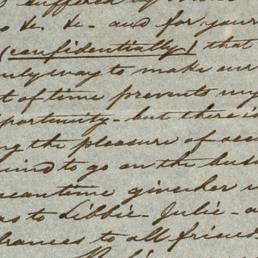 suffered by
to &. &- and for your
(confidentially) that
only way to make our
t of time prevents my
portunity- but there is
ng the pleasure of
mind to go on the
meantime give her
as to Libbie- Julie- a
brances to all friend